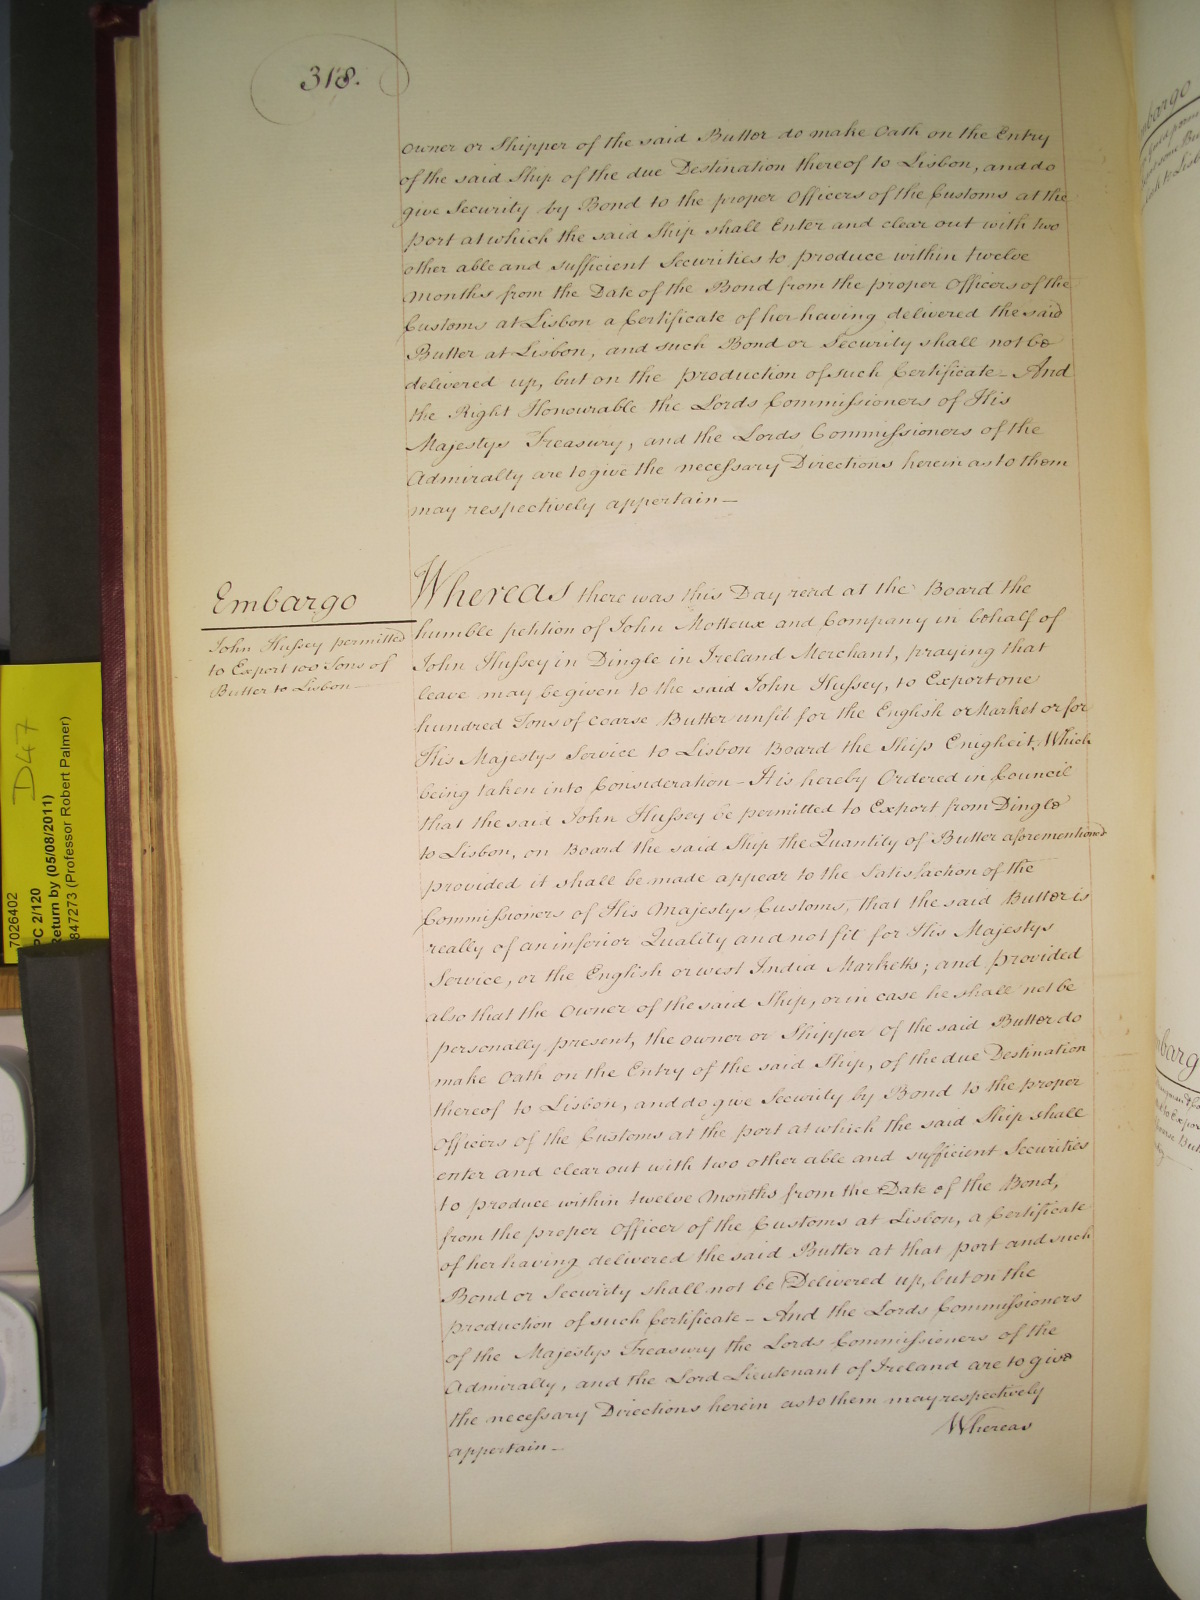 318.
Owner or Shipper of the said Butter do make Oath on the Entry
of the said Ship of the due Destination thereof to Lisbon, and do
give Security by Bond to the proper Officers of the Customs at the
port at which the said Ship shall Enter and clear out with two
other able and sufficient Securities to produce within twelve
Months from the Date of the Bond from the proper Officers of the
Customs at Lisbon a Certificate of her having delivered the said
Butter at Lisbon, and such Bond or Security shall not be
delivered up, but on the production of such Certificate – And
the Right Honourable the Lords Commissioners of His
Majestys Treasury, and the Lords Commissioners of the
Admiralty are to give the necessary Directions herein as to them
may respectively appertain —
Embargo
John Hussey permitted
to Export 100 Tons of
Butter to Lisbon —
Whereas there was this Day read at the Board the
humble petition of John Motteux and Company in behalf of
John Hussey in Dingle in Ireland Merchant, praying that
leave may be given to the said John Hussey, to Export one
hundred Tons of coarse Butter unfit for the English Market or for
His Majestys Service to Lisbon Board the Ship Enigheit, Which
being taken into Consideration – It is hereby Ordered in Council
that the said John Hussey be permitted to Export from Dingle
to Lisbon, on Board the said Ship the Quantity of Butter aforementioned
provided it shall be made appear to the Satisfaction of the
Commissioners of His Majestys Customs, that the said Butter is
really of an inferior Quality and not fit for His Majestys
Service, or the English or West India Marketts; and provided
also that the Owner of the said Ship, or in case he shall not be
personally present, the owner or Shipper of the said Butter do
make Oath on the Entry of the said Ship, of the due Destination
thereof to Lisbon, and do give Security by Bond to the proper
Officers of the Customs at the port at which the said Ship shall
enter and clear out with two other able and sufficient Securities
to produce within twelve Months from the Date of the Bond,
from the proper Officer of the Customs at Lisbon, a Certificate
of her having delivered the said Butter at that port and such
Bond or Security shall not be Delivered up, but on the
production of such Certificate – And the Lords Commissioners
of the Majestys Treasury the Lords Commissioners of the
Admiralty, and the Lord Lieutenant of Ireland are to give
the necessary Directions herein as to them may respectively
appertain –
Whereas
D47
7026402
PC 2/120
Return by (05/08/2011)
847273 (Professor Robert Palmer)